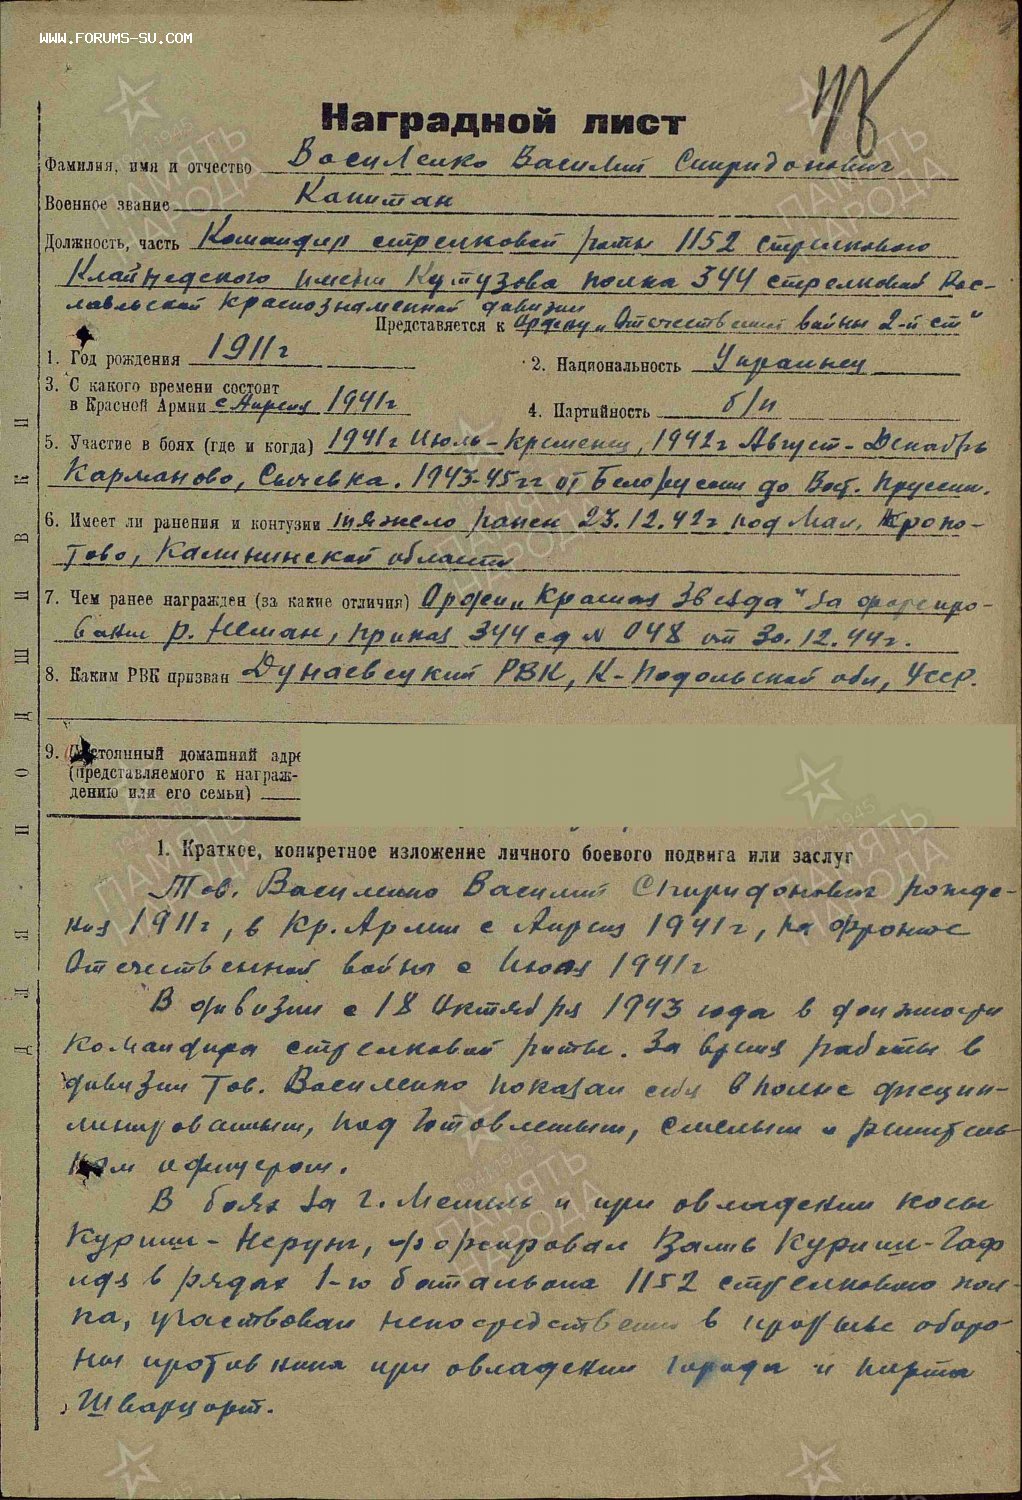 www.forums-su.com
Наградной лист
Фамилия, имя и отчество Василенко Василий Спиридонович
Военное звание Капитан
Должность, часть Командир стрелковой роты 1152 стрелкового
Клайпедского имени Кутузова полка 344 стрелковой Рос-
лавльской Краснознаменной дивизии
Представляется к Ордену „Отечественной войны 2-й ст"
1. Год рождения 1911 г
2. Национальность Украинец
3. С какого времени состоит
в Красной Армии с Апреля 1941 г
4. Партийность б/п
5. Участие в боях (где и когда) 1941 г Июль - Кременец, 1942 г Август - Декабрь
Карманово, Сычевка. 1943-45 гг от Белоруссии до Вост. Пруссии.
6. Имеет ли ранения и контузии тяжело ранен 23.12.42 г под Мал. Кропо-
тово, Калининской области
7. Чем ранее награжден (за какие отличия) Орден „Красная Звезда" за форсиро-
вание р. Неман, приказ 344 сд N 048 от 30.12.44 г.
8. Каким РВК призван Дунаевецкий РВК, К-Подольской обл, УССР.
9. Постоянный домашний адре
(представляемого к награж-
дению или его семьи)
ДЛЯ ПОДШИВКИ
1. Краткое, конкретное изложение личного боевого подвига или заслуг
Тов. Василенко Василий Спиридонович рожде-
ния 1911 г, в Кр. Армии с Апреля 1941 г, на фронте
Отечественной войны с Июля 1941 г
В дивизии с 18 Октября 1943 года в должности
командира стрелковой роты. За время работы в
дивизии тов. Василенко показал себя вполне дисцип-
линированным, подготовленым, смелым и решитель-
ным офицером.
В боях за г. Мемель и при овладении косы
Куриш-Нерунг, форсировал Залив Куриш-Гаф
идя в рядах 1-го батальона 1152 стрелкового пол-
ка, участвовал непосредственно в прорыве оборо-
ны противника при овладении города и порта
Шварцорт.
ПАМЯТЬ НАРОДА
1941-1945